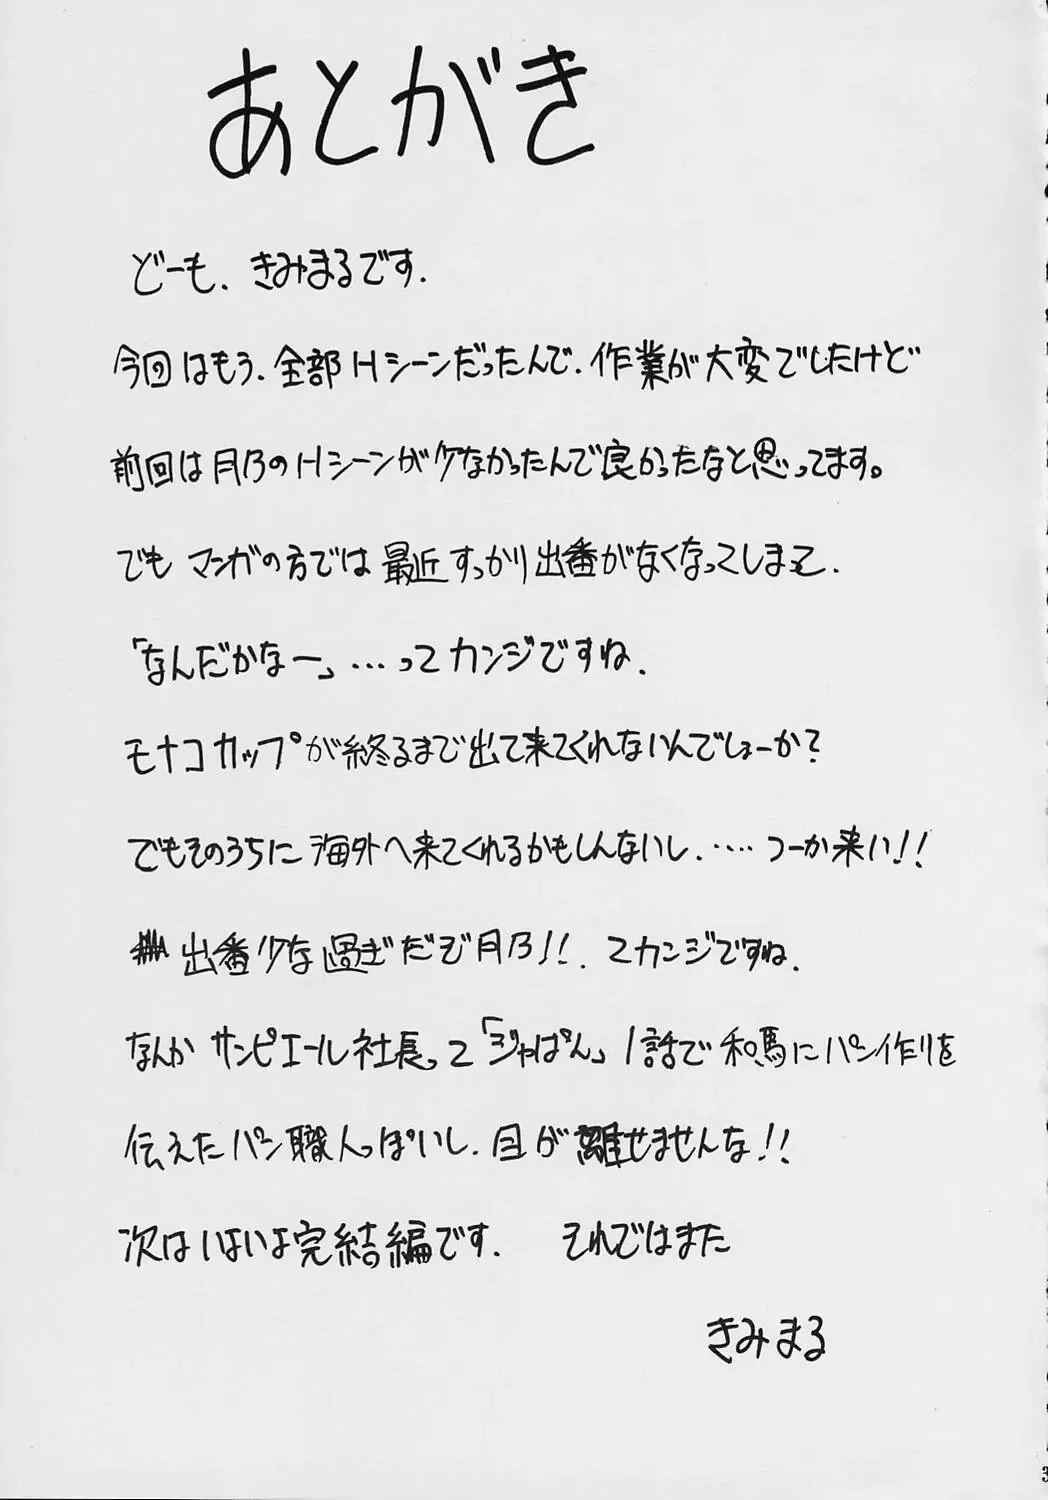 あとがき
どーも、きみまるです.
今回はもう、全部Hシーンだったんで、作業が大変でしたけど
前回は月乃のHシーンが少なかったんで良かったなと思ってます。
でもマンガの方では最近すっかり出番がなくなってしまって、
「なんだかなー」…ってカンジですね.
モナコカップが終るまで出て来てくれないんでしょーか?
でもそのうちに海外へ来てくれるかもしんないし、‥‥つーか来い!!
出番少な過ぎだぞ月乃!!.てカンジですね.
なんかサンピエール社長って「ジャぱん」1話で和馬にパン作りを
伝えたパン職人っぽいし、目が離せませんな!!
次はいよいよ完結編です. それではまた
きみまる